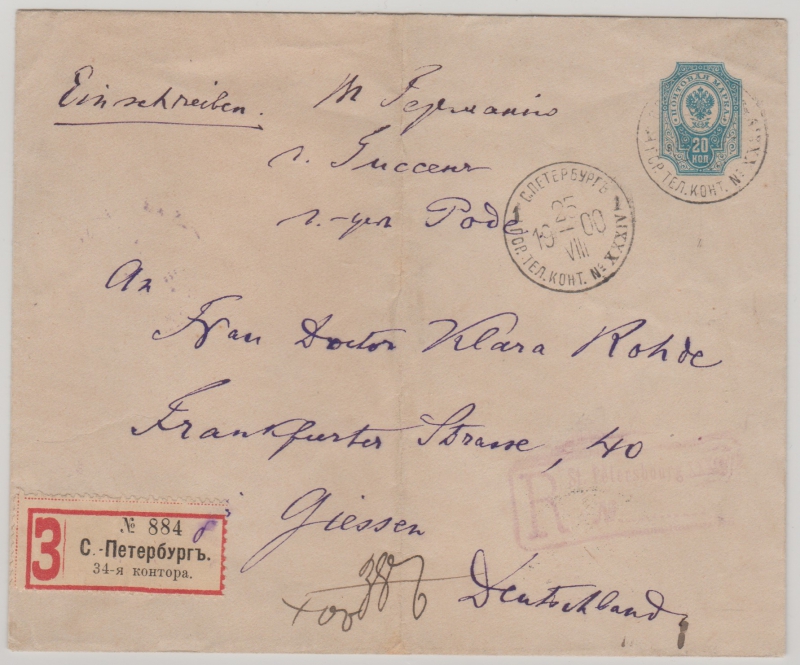 Einschreiben. Германію
г. Гиссенъ
г-жѣ Роде
ПОЧТОВАЯ МАРКА
20
КОП
ГОР. ТЕЛ. КОНТ. № XXXIV
С.ПЕТЕРБУРГЪ
25
19 00
VIII
ГОР. ТЕЛ. КОНТ. № XXXIV
An
Frau Doctor Klara Rohde
Frankfurter Strasse, 40
Giessen
Deutschland
R St. Pétersbourg
№
З
№ 884
С.-Петербургъ.
34-я контора.